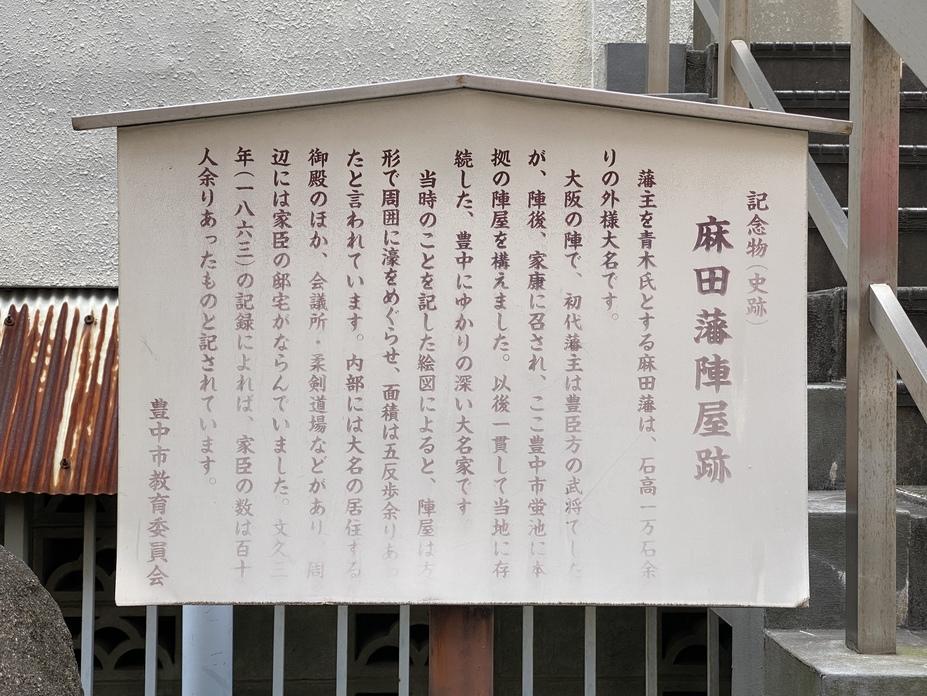 記念物(史跡)
麻田藩陣屋跡
藩主を青木氏とする麻田藩は、石高一万石余
りの外様大名です。
大阪の陣で、初代藩主は豊臣方の武将でした
が、陣後、家康に召され、ここ豊中市蛍池に本
拠の陣屋を構えました。以後一貫して当地に存
続した、豊中にゆかりの深い大名家です
当時のことを記した絵図によると、陣屋は方
形で周囲に濠をめぐらせ、面積は五反歩余りあっ
たと言われています。内部には大名の居住する
御殿のほか、会議所・柔剣道場などがあり 周
辺には家臣の邸宅がならんでいました。文久三
年(一八六三)の記録によれば、家臣の数は百十
人余りあったものと記されています。
豊中市教育委員会